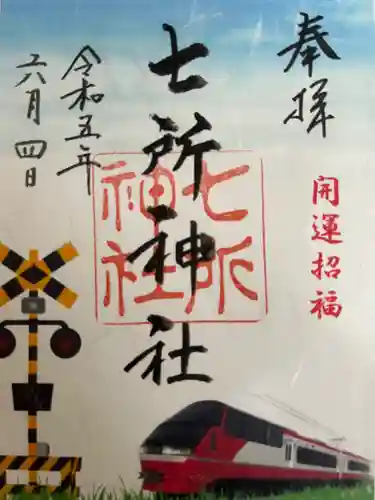 奉拝
開運招福
七所神社
七所
神社
令和五年
六月四日